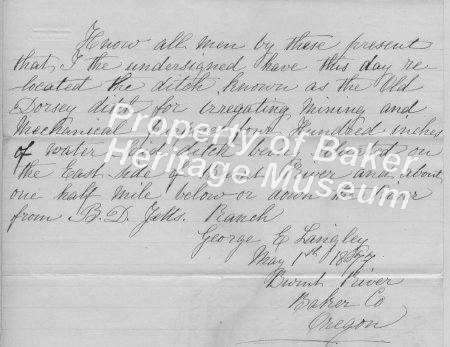 Know all men by these present
that I the undersigned have this day re-
located the ditch known as the Old
Dorsey ditch for irregating Mining and
Mechanical Hundred inches
of water Said ditch being located on
the East side of Burnt River and about
one half mile below or down the River
from B. D. Ranch
George E Langley
May 1st 1877
Burnt River
Baker Co
Oregon
Property of Baker
Heritage Museum